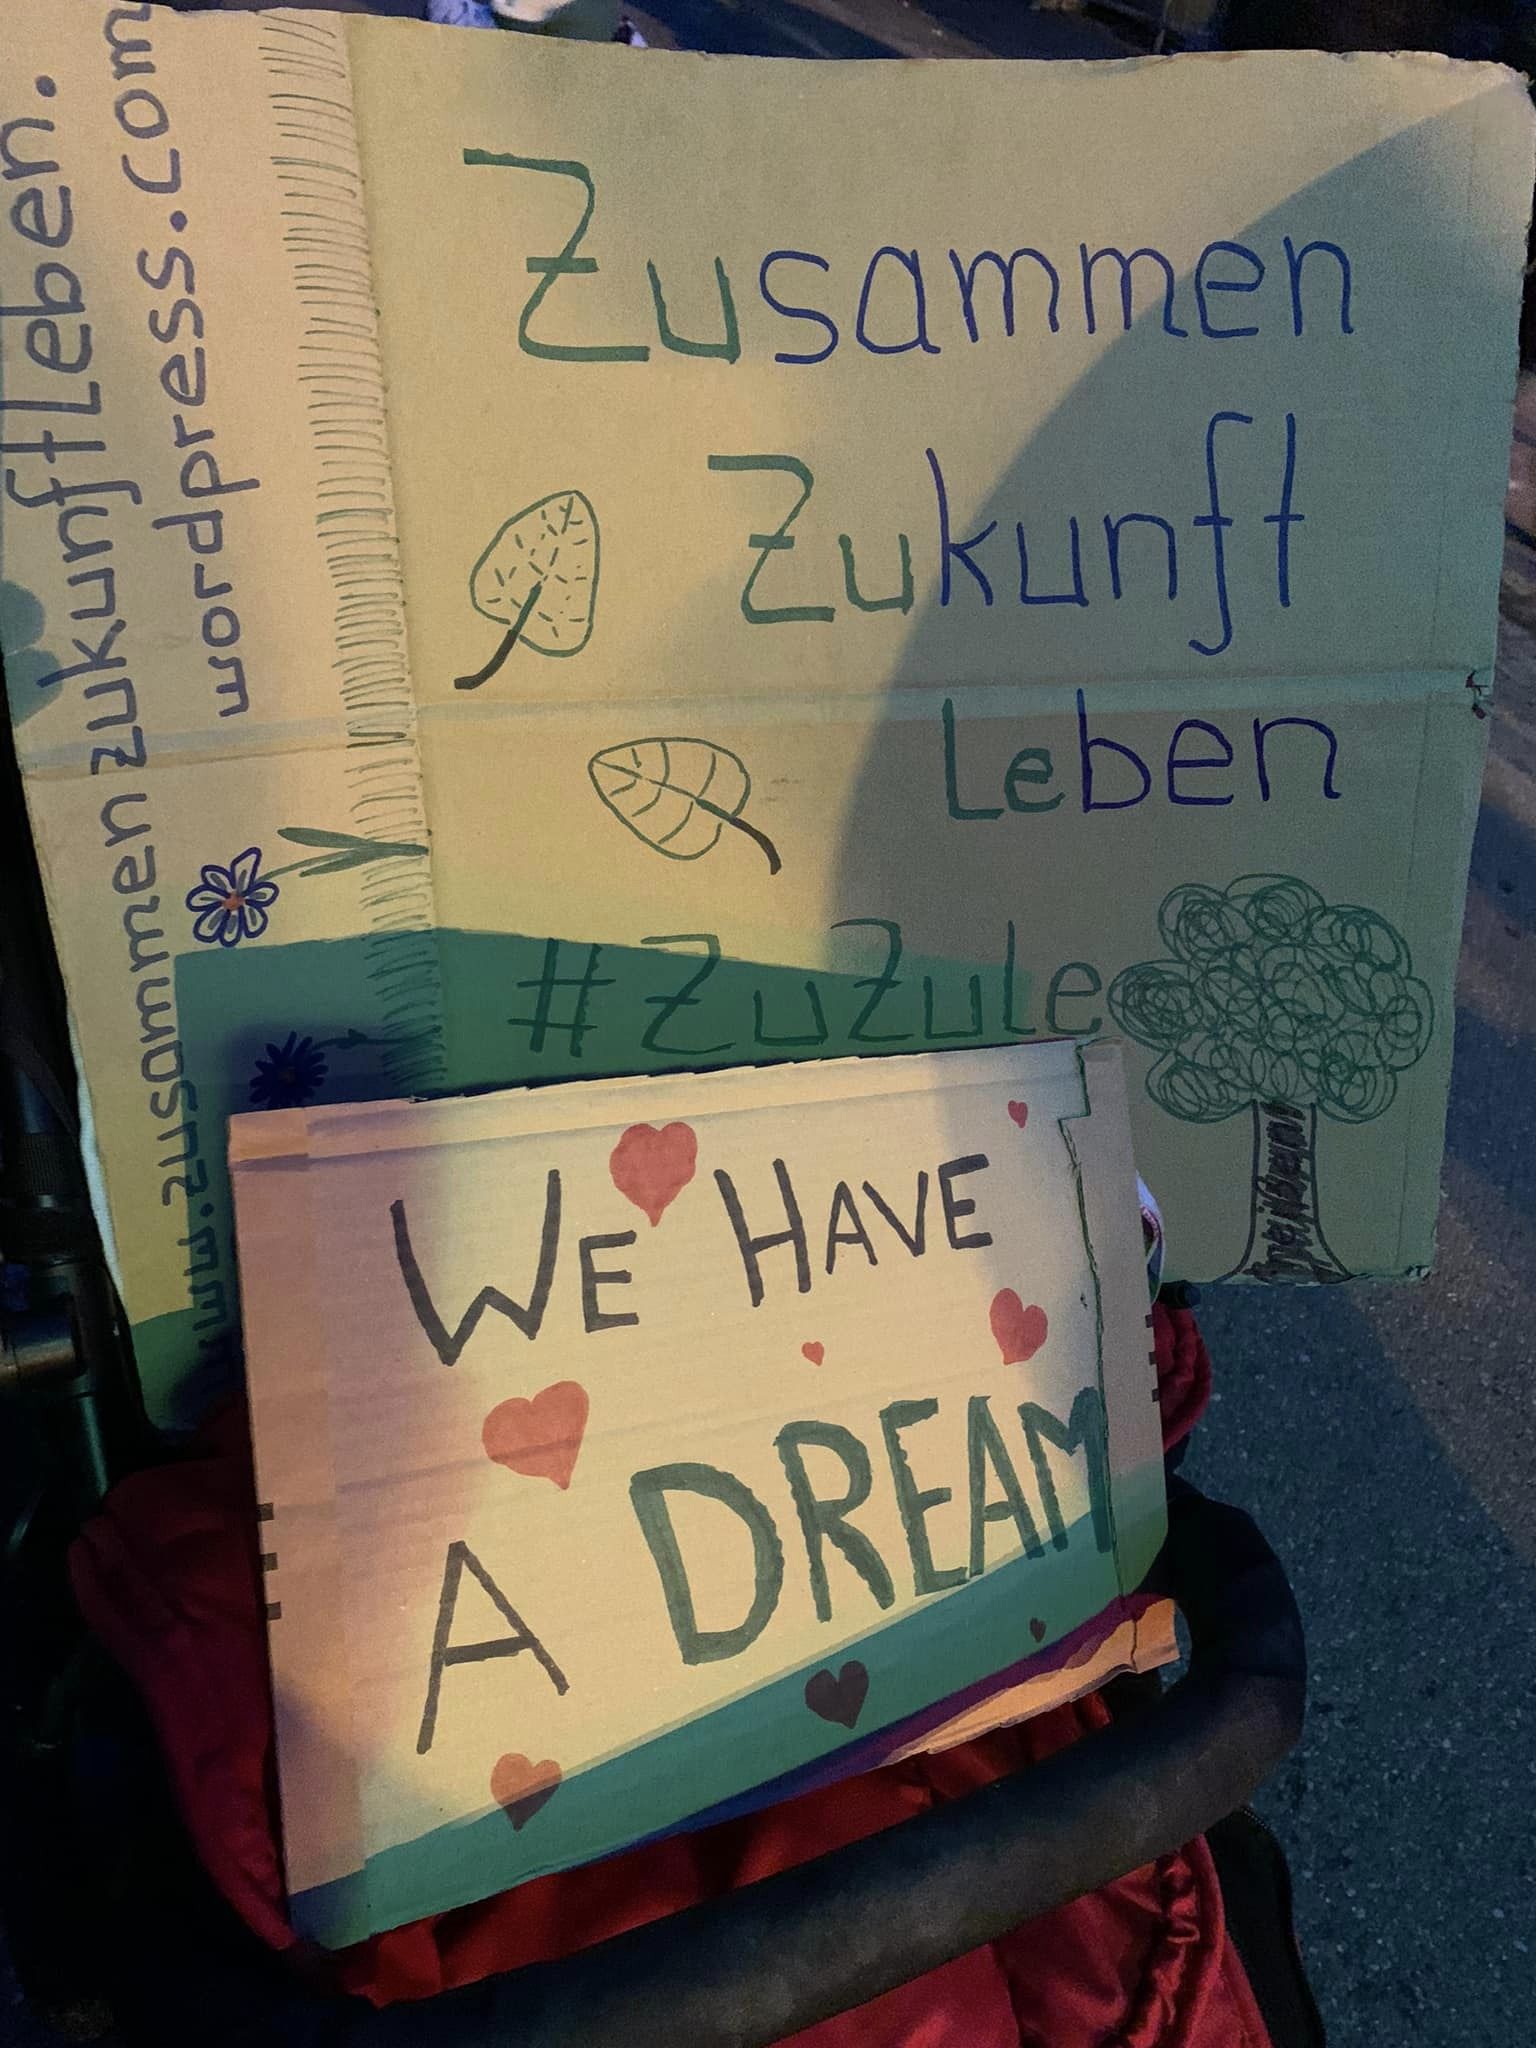 Zusammen
Zukunft
Leben
#ZuZuLe
www.zusammenzukunftleben.
wordpress.com
WE HAVE
A DREAM